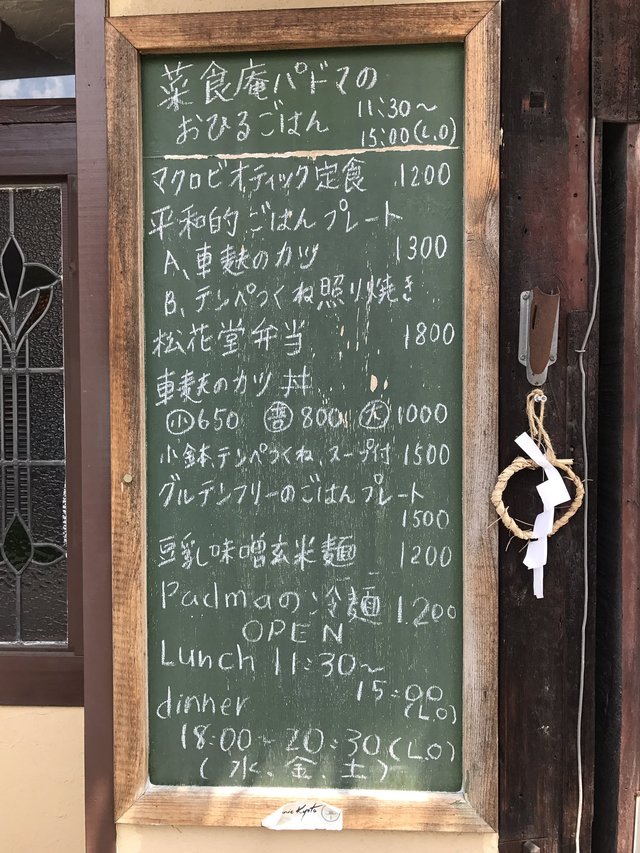 菜食庵パドマの
おひるごはん 11:30~
15:00(L.O)
マクロビオティック定食 1200
平和的ごはんプレート
A、車麸のカツ 1300
B、テンペつくね照り焼き
松花堂弁当 1800
車麸のカツ丼
小650 普800 大1000
小鉢、テンペつくね、スープ付 1500
グルテンフリーのごはんプレート
1500
豆乳味噌玄米麺 1200
Padmaの冷麺 1200
OPEN
Lunch 11:30~
15:00
(L.O)
dinner
18:00-20:30(L.O)
(水、金、土)
Kyoto